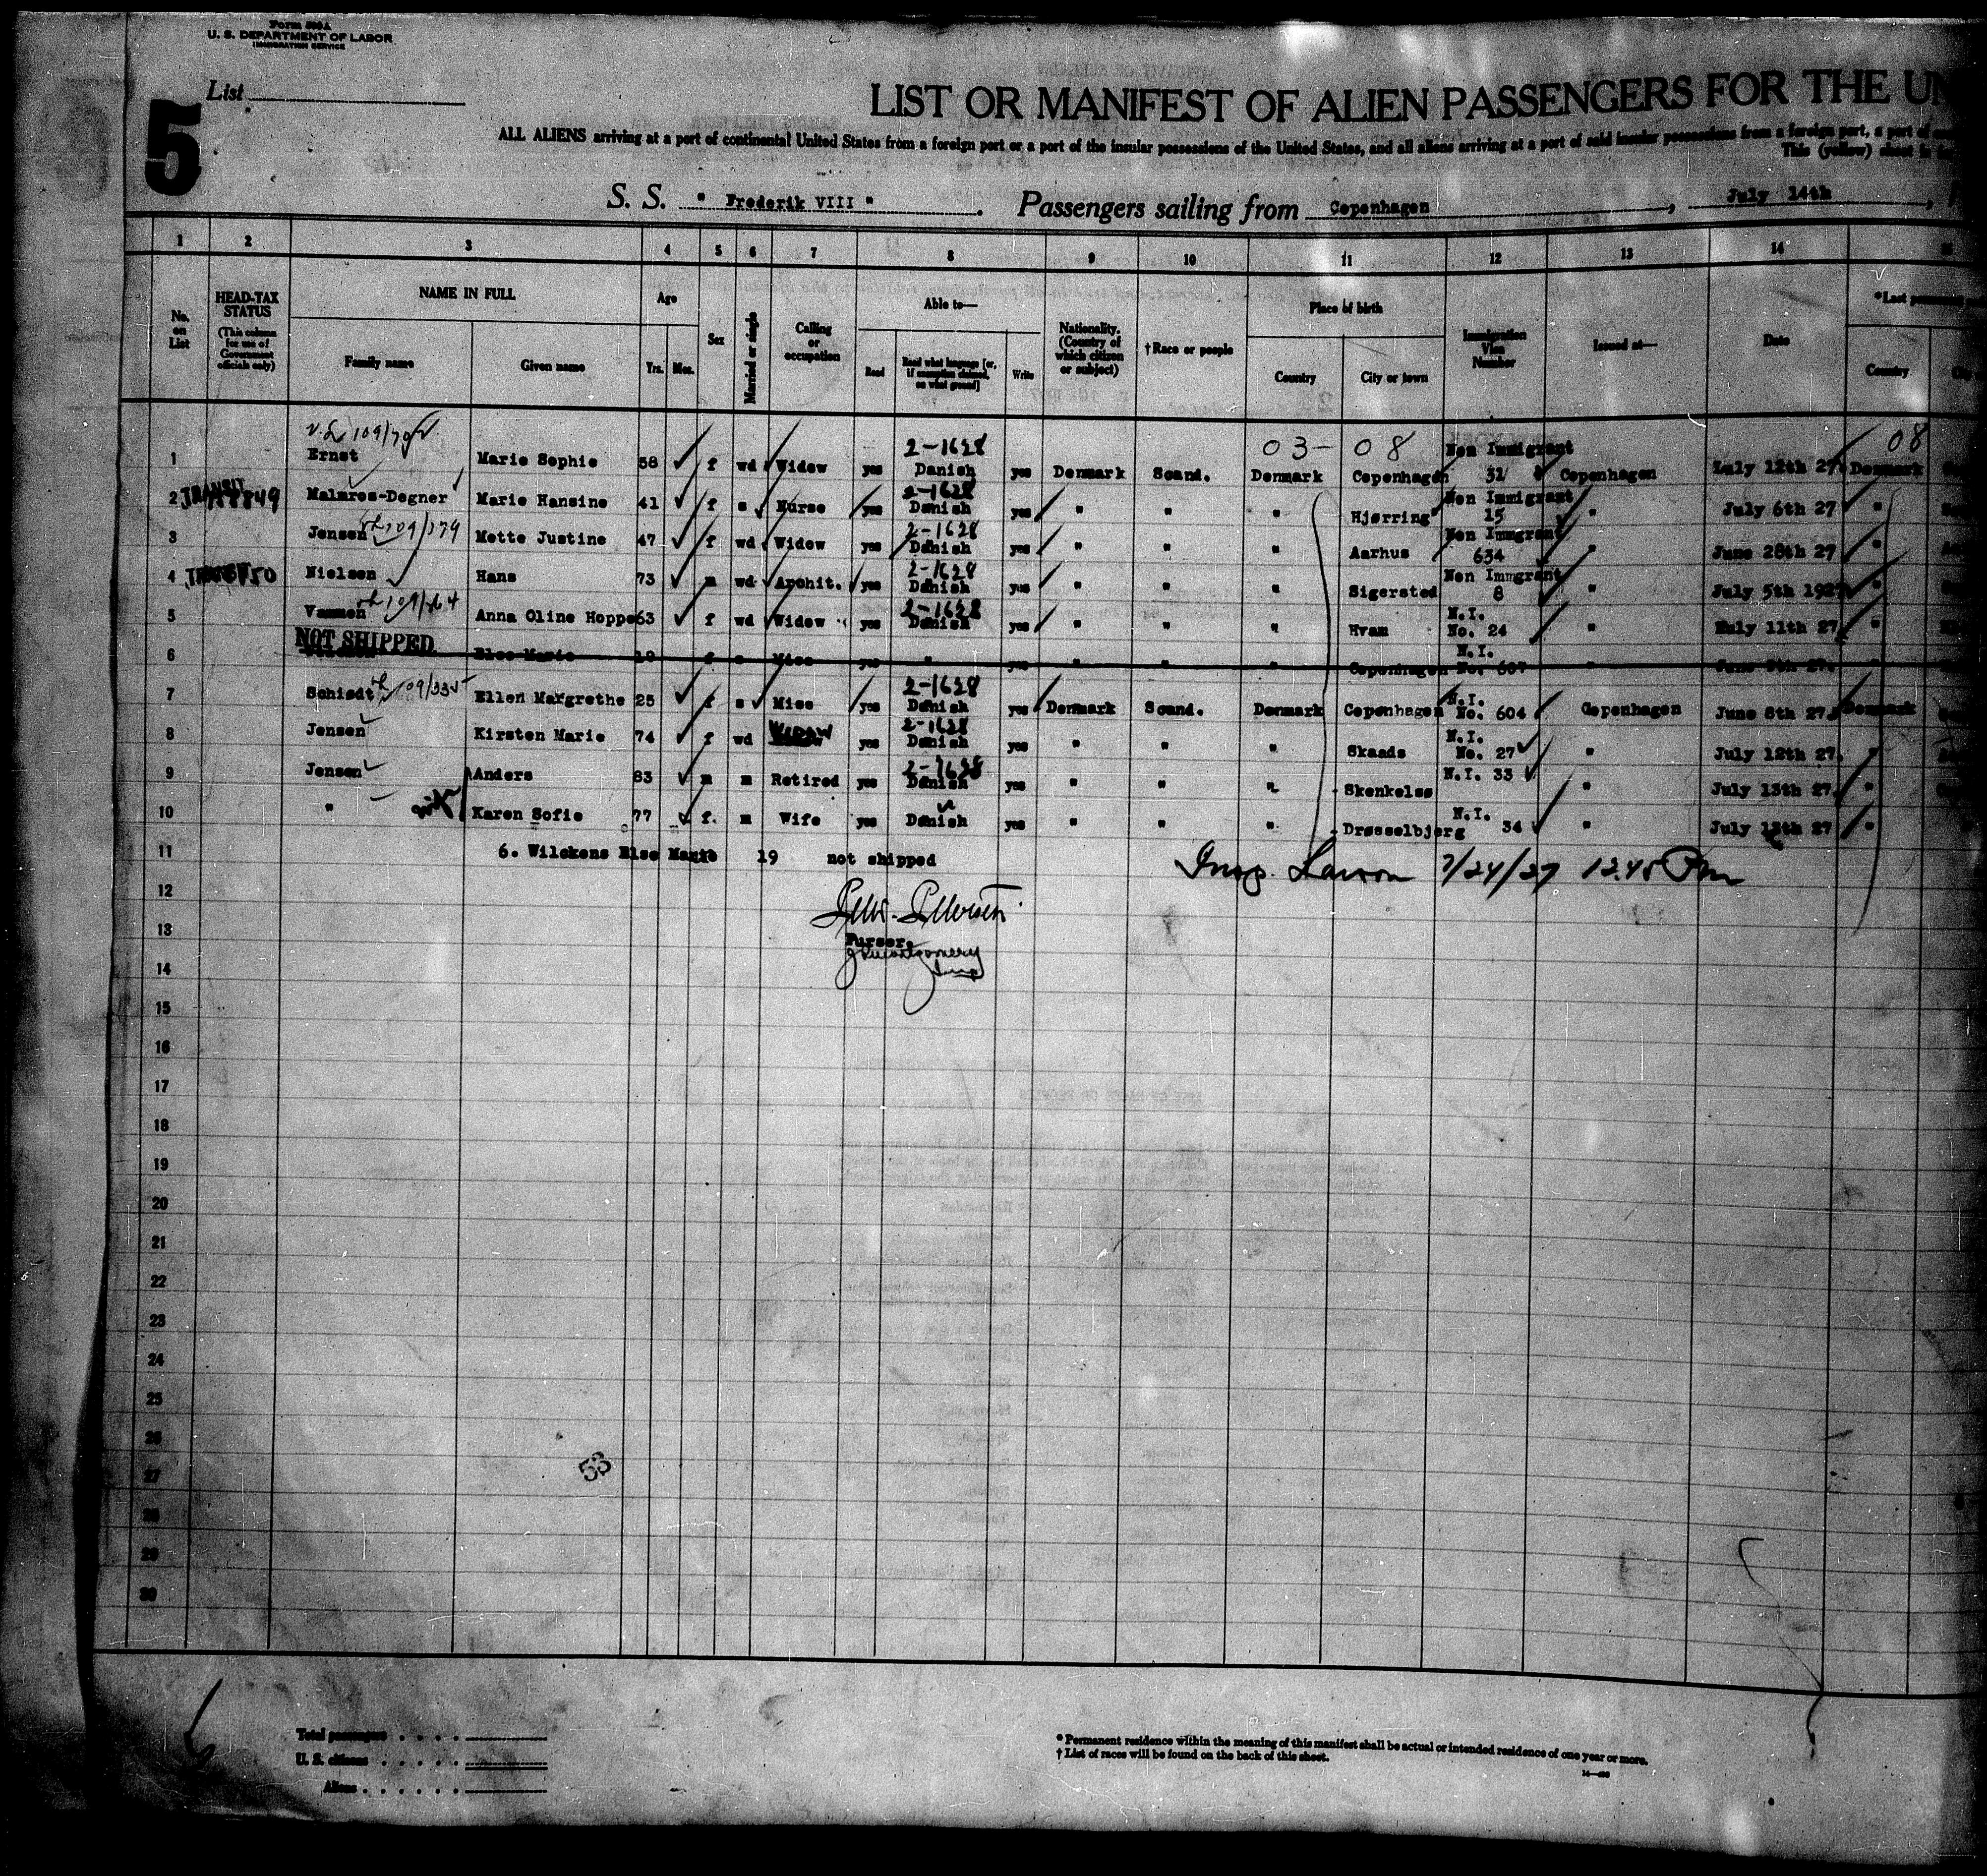 Form 500A
U. S. DEPARTMENT OF LABOR
IMMIGRATION SERVICE
List
5
LIST OR MANIFEST OF ALIEN PASSENGERS FOR THE UN
ALL ALIENS arriving at a port of continental United States from a foreign port or a port of the insular possessions of the United States, and all aliens arriving at a port of said insular possessions from a foreign port, a port of
This (yellow) sheet is
S. S. " Frederik VIII " . Passengers sailing from Copenhagen , July 14th ,
1 2 3 4 5 6 7 8 9 10 11 12 13 14
No. on List
HEAD-TAX STATUS
(This column for use of Government officials only)
NAME IN FULL
Family name Given name
Age
Yrs. Mos.
Sex
Married or single
Calling or occupation
Able to—
Read Read what language [or, if exemption claimed, on what ground] Write
Nationality. (Country of which citizen or subject)
†Race or people
Place of birth
Country City or town
Immigration Visa Number
Issued at—
Date
*Last permanent
Country
109/702 2-1628 03- 08 Non Immigrant 08
1 Ernst Marie Sophie 58 f wd Widow yes Danish yes Denmark Scand. Denmark Copenhagen 31 Copenhagen July 12th 27 Denmark
TRANSIT 2-1628 Non Immigrant
2 Malmros-Degner Marie Hansine 41 f s Nurse yes Danish yes " " " Hjørring 15 " July 6th 27 "
109/179 2-1628 Non Immgrant
3 Jensen Mette Justine 47 f wd Widow yes Danish yes " " " Aarhus 634 " June 28th 27 "
2-1628 Non Immgrant
4 Nielsen Hans 73 m wd Archit. yes Danish yes " " " Sigersted 8 " July 5th 1927 "
2-1628 N.I.
5 Vammen Anna Oline Hoppe 63 f wd Widow yes Danish yes " " " Hvam No. 24 " July 11th 27 "
NOT SHIPPED N.I.
6 Else Marie 19 f s Miss yes " yes " " " Copenhagen No. 607 " June 27. "
109/335 2-1628 N.I.
7 Schiødt Ellen Margrethe 25 f s Miss yes Danish yes Denmark Scand. Denmark Copenhagen No. 604 Copenhagen June 8th 27. Denmark
2-1628 N.I.
8 Jensen Kirsten Marie 74 f wd Widow yes Danish yes " " " Skaads No. 27 " July 12th 27. "
2-1628 N.I. 33
9 Jensen Anders 83 m m Retired yes Danish yes " " " Skenkelsø " July 13th 27. "
N.I.
10 " Karen Sofie 77 f. m Wife yes Danish yes " " " Drøsselbjerg 34 " July 13th 27 "
11 6. Wilckens Else Marie 19 not shipped Insp. Larson 7/24/27 12.45 Pm
12
13 Purser.
Montgomery
14 Insp
15
16
17
18
19
20
21
22
23
24
25
26
53
27
28
29
30
Total passengers
U. S. citizens
Aliens
* Permanent residence within the meaning of this manifest shall be actual or intended residence of one year or more.
† List of races will be found on the back of this sheet.